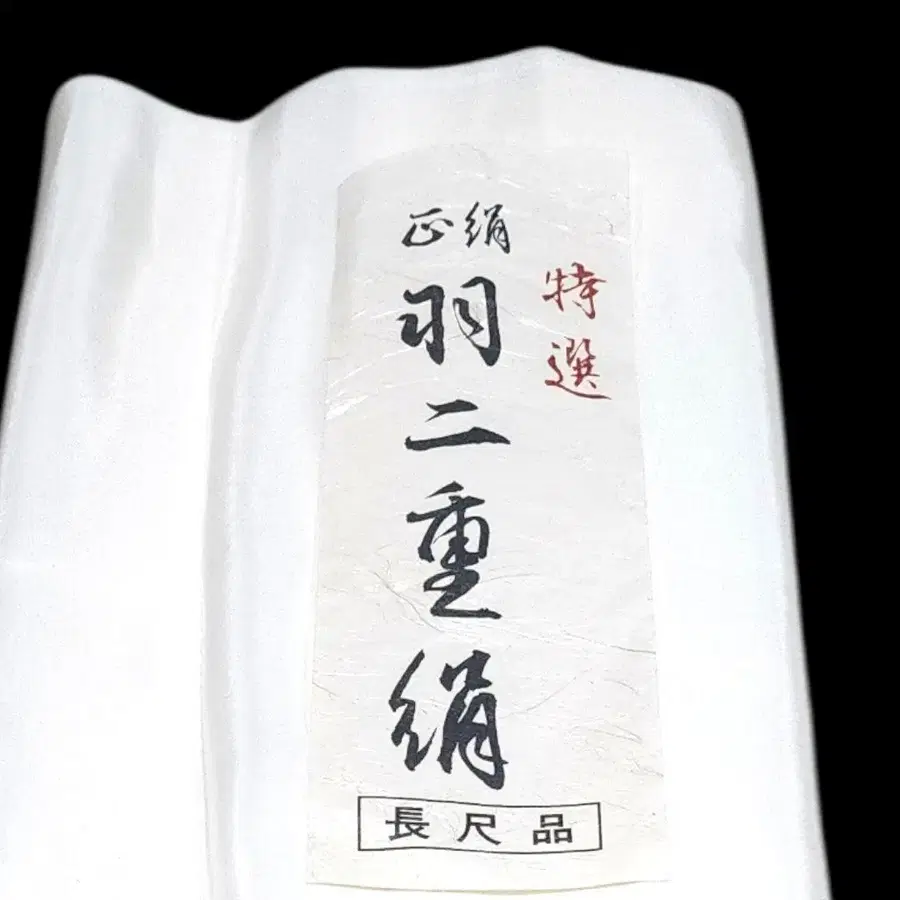 特選
正絹
羽二重絹
長尺品